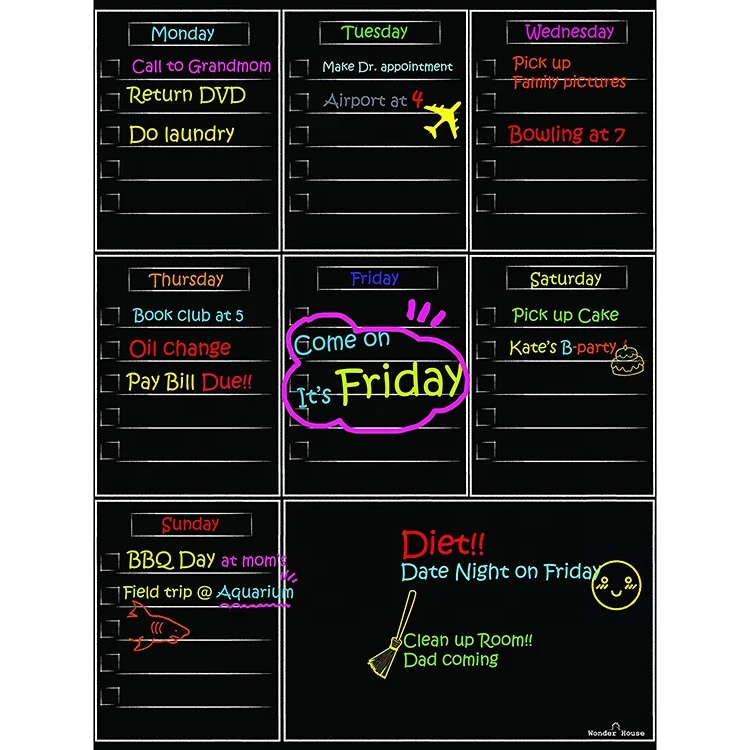 Monday
Call to Grandmom
Return DVD
Do laundry
Tuesday
Make Dr. appointment
Airport at 4
Wednesday
Pick up
Family pictures
Bowling at 7
Thursday
Book club at 5
Oil change
Pay Bill Due!!
Friday
Come on
It's Friday
Saturday
Pick up Cake
Kate's B-party
Sunday
BBQ Day at mom's
Field trip @ Aquarium
Diet!!
Date Night on Friday
Clean up Room!!
Dad coming
Wonder House